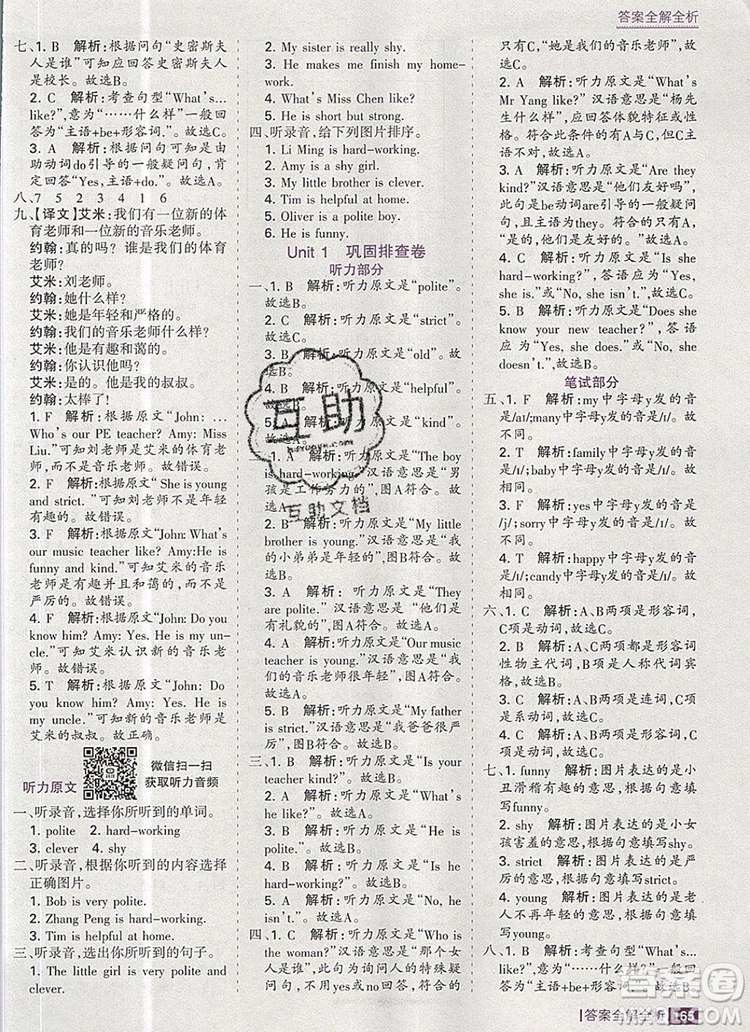 答案全解全析
七、1. B 解析:根据问句“史密斯夫
人是谁”可知应回答史密斯夫人
是校长。故选B。
2. C 解析:考查句型“What's…
like?”,意为“……什么样”。应回
答为“主语+be+形容词.”。故选C。
3. A 解析:根据问句可知是由
助动词do引导的一般疑问句,肯
定回答“Yes, 主语+do.”。故选A。
八、7 5 2 3 4 1 6
九、【译文】艾米:我们有一位新的体
育老师和一位新的音乐老师。
约翰:真的吗? 谁是我们的体育
老师?
艾米:刘老师。
约翰:她什么样?
艾米:她是年轻和严格的。
约翰:我们的音乐老师什么样?
艾米:他是有趣和蔼的。
约翰:你认识他吗?
艾米:是的,他是我的叔叔。
约翰:太棒了!
1. F 解析:根据原文“John: …
Who's our PE teacher? Amy: Miss
Liu.”可知刘老师是艾米的体育
老师。故错误。
2. F 解析:根据原文“She is young
and strict. ”可知刘老师是年轻并
且严格的。故错误。
3. T 解析:根据原文“John:What's
our music teacher like? Amy:He is
funny and kind.”可知新的音乐老
师是有趣并且和蔼的,故正确。
4. F 解析:根据原文“John: Do you
know him? Amy: Yes. He is my un-
cle.”可知艾米认识新的音乐老
师。故错误。
5. T 解析:根据原文“John: Do
you know him? Amy: Yes. He is
my uncle.”可知新的音乐老师是
艾米的叔叔。故正确。
微信扫一扫
获取听力音频
听力原文
一、听录音,选择你所听到的单词。
1. polite 2. hard-working
3. clever 4. shy
二、听录音,根据你听到的内容选择
正确图片。
1. Bob is very polite.
2. Zhang Peng is hard-working.
3. Tim is helpful at home.
三、听录音,选出你所听到的句子。
1. The little girl is very polite and
clever.
2. My sister is really shy.
3. He makes me finish my home-
work.
4. What's Miss Chen like?
5. He is short but strong.
四、听录音,给下列图片排序。
1. Li Ming is hard-working.
2. Amy is a shy girl.
3. My little brother is clever.
4. Tim is helpful at home.
5. Oliver is a polite boy.
6. He is funny.
Unit 1 巩固排查卷
听力部分
一、1. B 解析:听力原文是“polite”。
故选B。
2. C 解析:听力原文是“strict”。
故选C。
3. B 解析:听力原文是“old”。故
选B。
4. B 解析:听力原文是“helpful”。
故选B。
解析:听力原文是“kind”。故
1. B 解析:听力原文是“The boy
is hard-working.”汉语意思是“男
孩是工作努力的”,图A符合。故
2. B 解析:听力原文是“My little
brother is young.”汉语意思是“我
的小弟弟是年轻的”,图B符合。
故选B。
3. A 解析:听力原文是“They
are polite.”汉语意思“他们是
有礼貌的”,图A符合。故选A。
4. A 解析:听力原文是“Our music
teacher is young.”汉语意思是“我
们的音乐老师是年轻的”,图A符
合。故选A。
5. B 解析:听力原文是“My father
is strict.”汉语意思是“我爸爸很严
厉”,图B符合。故选B。
三、1. B 解析:听力原文是“He is
young.”。故选B。
2. A 解析:听力原文是“What's
he like?”。故选A。
3. B 解析:听力原文是“He is
polite.”。故选B。
4. B 解析:听力原文是“Is he
hard-working?”。故选B。
5. A 解析:听力原文是“No, he
isn't.”。故选A。
四、1. B 解析:听力原文是“Who is
the woman?”汉语意思是“那个女
人是谁”,此句为询问人的特殊疑
问句,不能用一般疑问句回答,故
只有C,“她是我们的音乐老师”符合。
2. A 解析:听力原文是“What is
Mr Yang like?”汉语意思是“杨先
生什么样”,应回答具体面貌特征或
性格。符合此条件的有A与C,但C
主语不对。故选A。
3. A 解析:听力原文是“Are they
kind?”汉语意思是“他们友好吗”,
此句是be动词are引导的一般疑问
句,且主语为they。故选A。
4. B 解析:听力原文是“Is she
hard-working?”答语应为“Yes,
she is.”或“No, she isn't.”。故选B。
5. B 解析:听力原文是“Does she
know your new teacher?”, 答语
应为“Yes, she does.”或“No, she
doesn't.”。故选B。
笔试部分
五、1. F 解析:my中字母y发的音
是/aɪ/;many中字母y发的音是/ɪ/。故
不同。
2. T 解析:family中字母y发的音是
/ɪ/;baby中字母y发的音是/ɪ/。故
相同。
3. F 解析:yes中字母y发的音是
/j/;sorry中字母y发的音是/ɪ/。故
不同。
4. T 解析:happy中字母y发的音
是/ɪ/;candy中字母y发的音是/ɪ/。
故相同。
六、1. C 解析:A、B两项是形容词,
C项是动词,故选C。
2. C 解析:A、B两项都是形容词
性物主代词,C项是动词,故选C。
3. C 解析:A、B两项是连词,C
项是动词,故选C。
4. C 解析:A、B两项是形容词,C
项是系动词。故选C。
七、1. funny 解析:图片表达的是小
丑滑稽有趣,根据句意应填
写funny。
2. shy 解析:图片表达的是小女
孩害羞的意思,根据句意填写shy。
3. strict 解析:图片表达的是严
厉的意思,根据句意填写strict。
4. young 解析:图片表达的是年
轻的意思,根据句意填
写young。
八、1. B 解析:考查句型“What's…
like?”,意为“……什么样”。应回
答为“主语+be+形容词.”,故选B。
答案全解全析 165
互助
互助文档